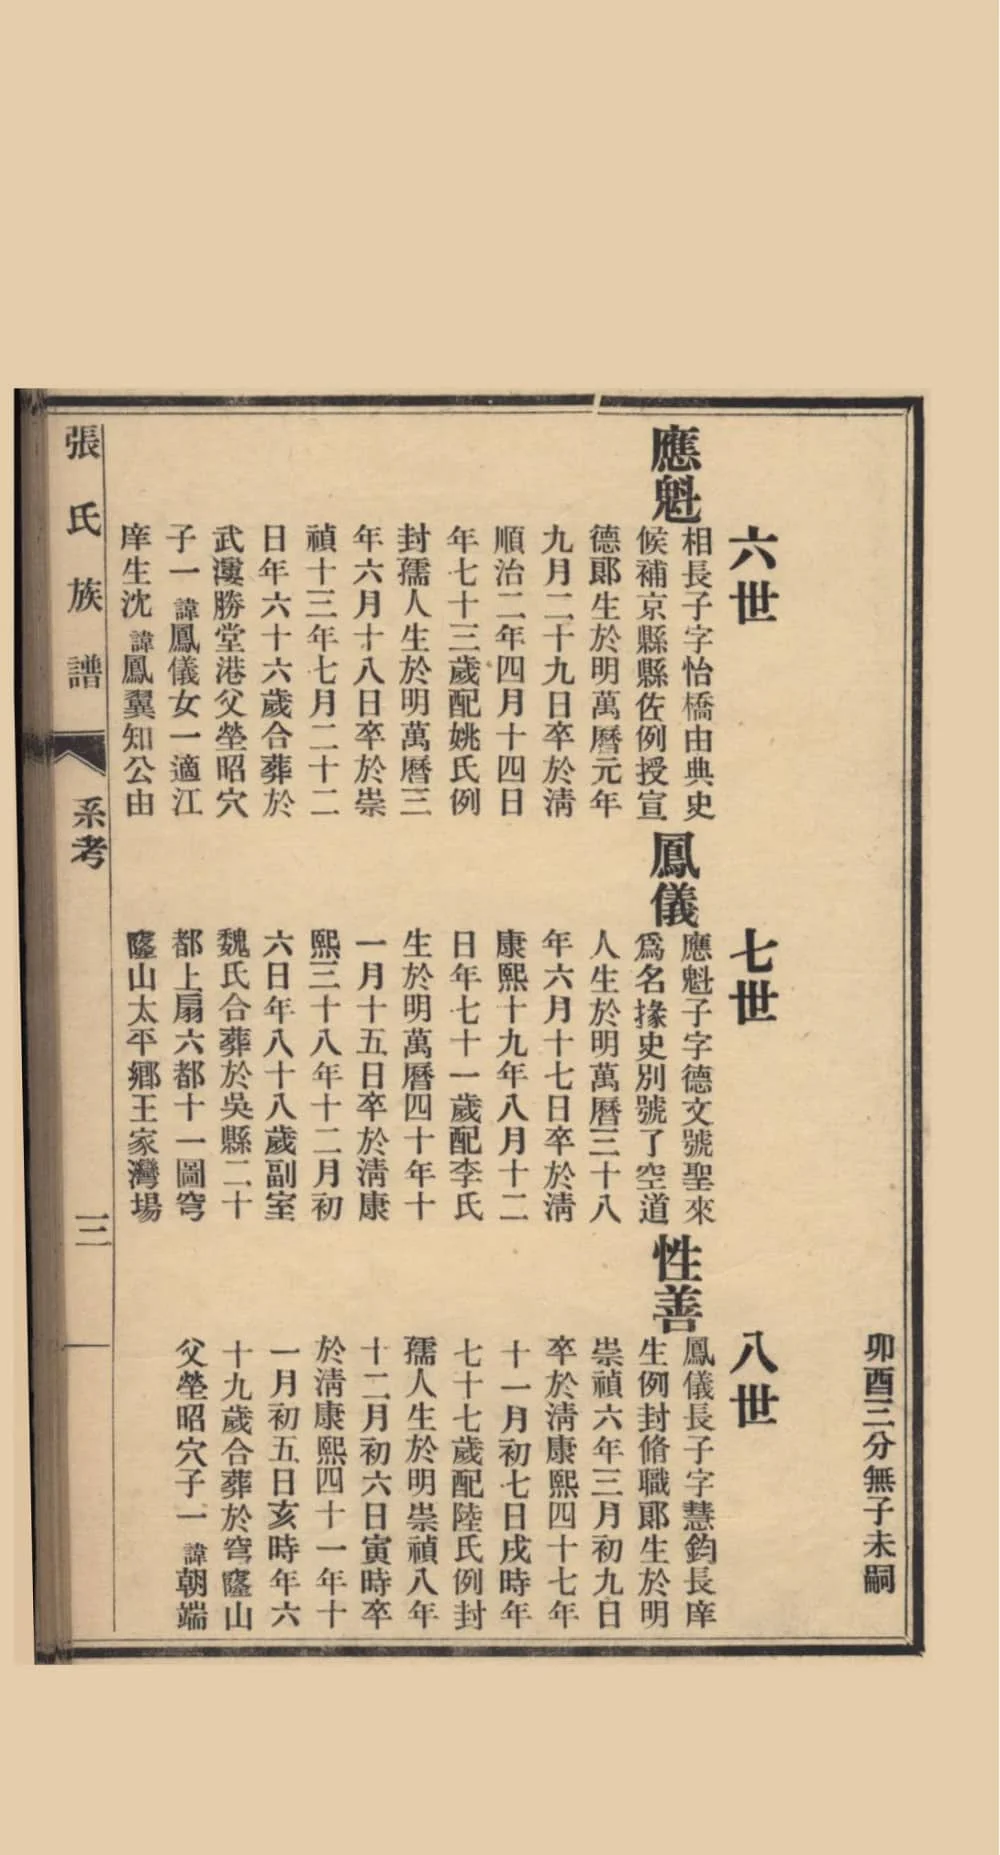 卯酉三分無子未嗣
六世
應魁
相長子字怡橋由典史
候補京縣縣佐例授宣
德郎生於明萬曆元年
九月二十九日卒於淸
順治二年四月十四日
年七十三歲配姚氏例
封孺人生於明萬曆三
年六月十八日卒於崇
禎十三年七月二十二
日年六十六歲合葬於
武瀼勝堂港父塋昭穴
子一諱鳳儀女一適江
庠生沈諱鳳翼知公由
七世
鳳儀
應魁子字德文號聖來
爲名掾史別號了空道
人生於明萬曆三十八
年六月十七日卒於淸
康熙十九年八月十二
日年七十一歲配李氏
生於明萬曆四十年十
一月十五日卒於淸康
熙三十八年十二月初
六日年八十八歲副室
魏氏合葬於吳縣二十
都上扇六都十一圖穹
窿山太平鄉王家灣場
八世
性善
鳳儀長子字慧鈞長庠
生例封脩職郎生於明
崇禎六年三月初九日
卒於淸康熙四十七年
十一月初七日戌時年
七十七歲配陸氏例封
孺人生於明崇禎八年
十二月初六日寅時卒
於淸康熙四十一年十
一月初五日亥時年六
十九歲合葬於穹窿山
父塋昭穴子一諱朝端
張氏族譜
系考
三